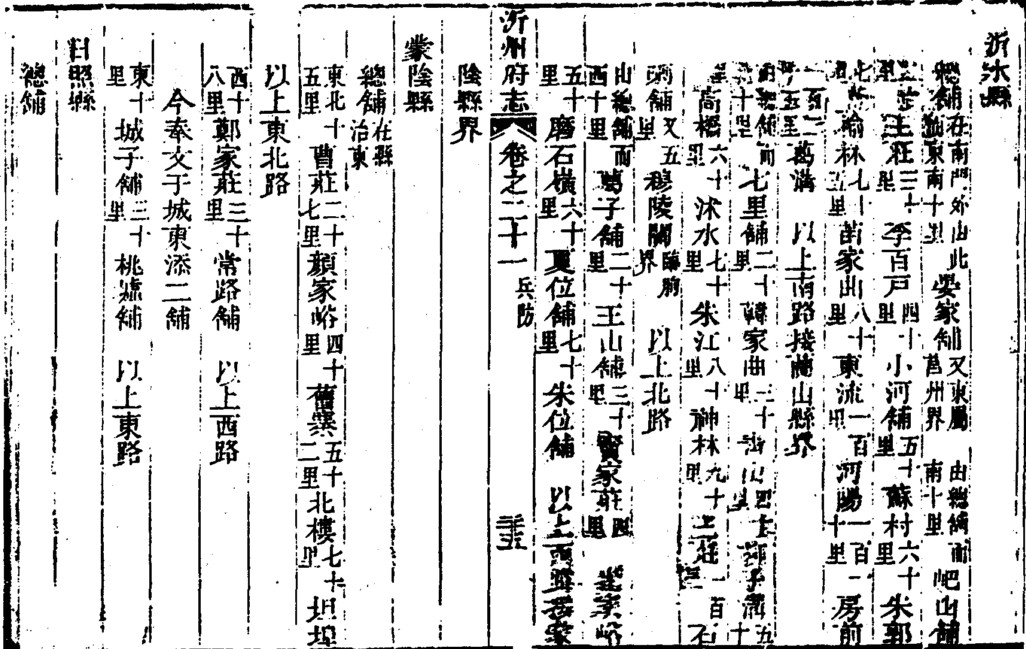 沂水縣
總舖在南門外由此總舖東南十里晏家舖又東屬莒州界 由總舖而南十里岜山舖
二十里土莊三十里李百戶四十里小河舖五十里蘇村六十里朱郭
七十里榆林七十里苗家曲八十里東流一百里河陽一百一十里房前
一百二十五里葛溝 以上南路接蘭山縣界
由總舖而北十里七里舖二十里韓家曲三十里四十里溝五十里
高橋六十里沭水七十里朱江八十里神林九十里一百
舖又五里穆陵關臨朐界 以上北路
由總舖而西十里葛子舖二十里王山舖三十里賈家莊四十里峪
五十里磨石嶺六十里夏位舖七十里朱位舖 以上西路接蒙
沂州府志 卷之二十一 兵防 三五
陰縣界
蒙陰縣
總舖在縣治東
東北十五里曹莊二十七里顏家峪四十里舊寨五十二里北樓七十里坦埠
以上東北路
西十八里鄭家莊三十里常路舖 以上西路
今奉文于城東添二舖
東十里城子舖三十里桃墟舖 以上東路
日照縣
總舖